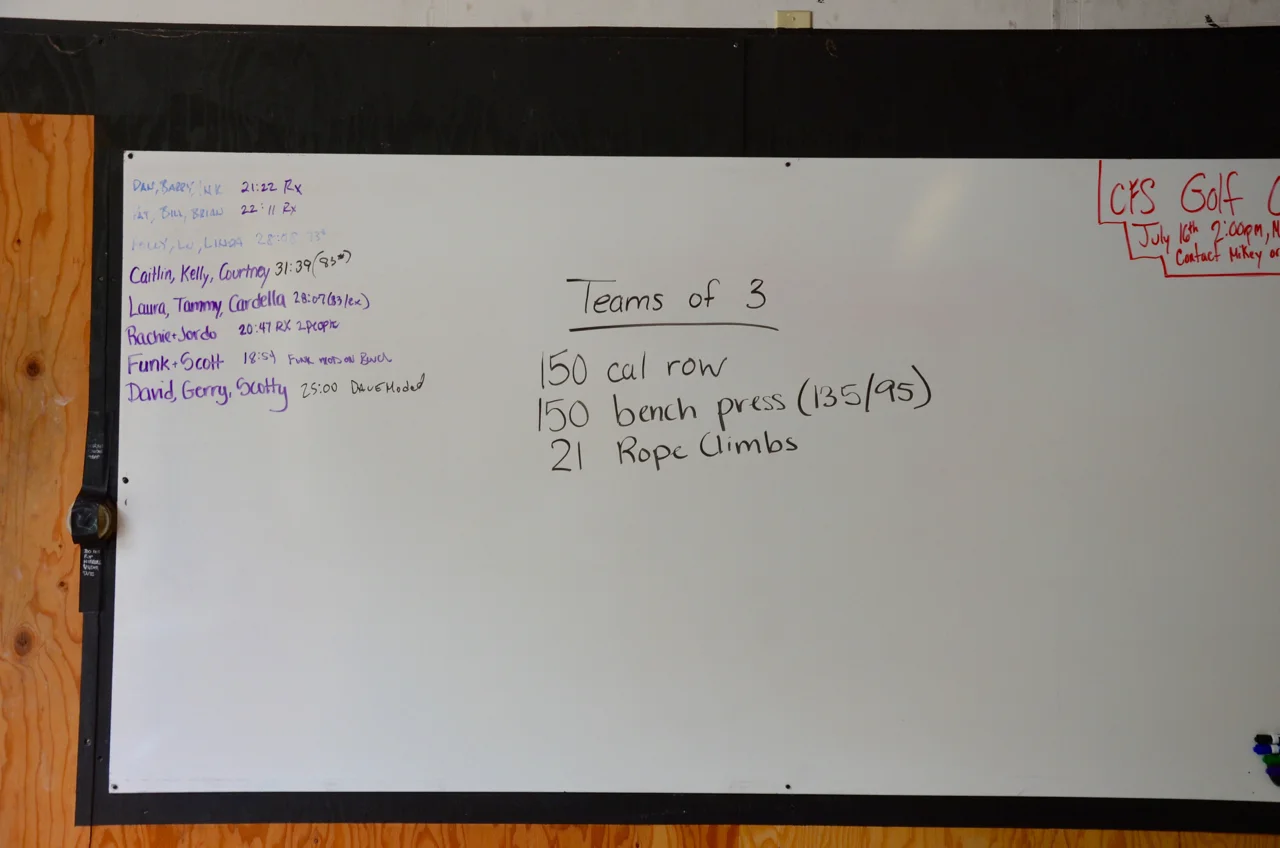 DAN, BARRY, 21:22 Rx
BILL, BRIAN 22:11 Rx
LU, LINDA 28:08
Caitlin, Kelly, Courtney 31:39 (85#)
Laura, Tammy, Cardella 28:07 (83/ex)
Rachie + Jordo 20:47 RX 2 people
Funk + Scott 18:54 FUNK MODS ON BENCH
David, Gerry, Scotty 25:00 DAVE Moded
Teams of 3
150 cal row
150 bench press (135/95)
21 Rope Climbs
CFS Golf
July 16th 2:00pm, M
Contact Mikey or